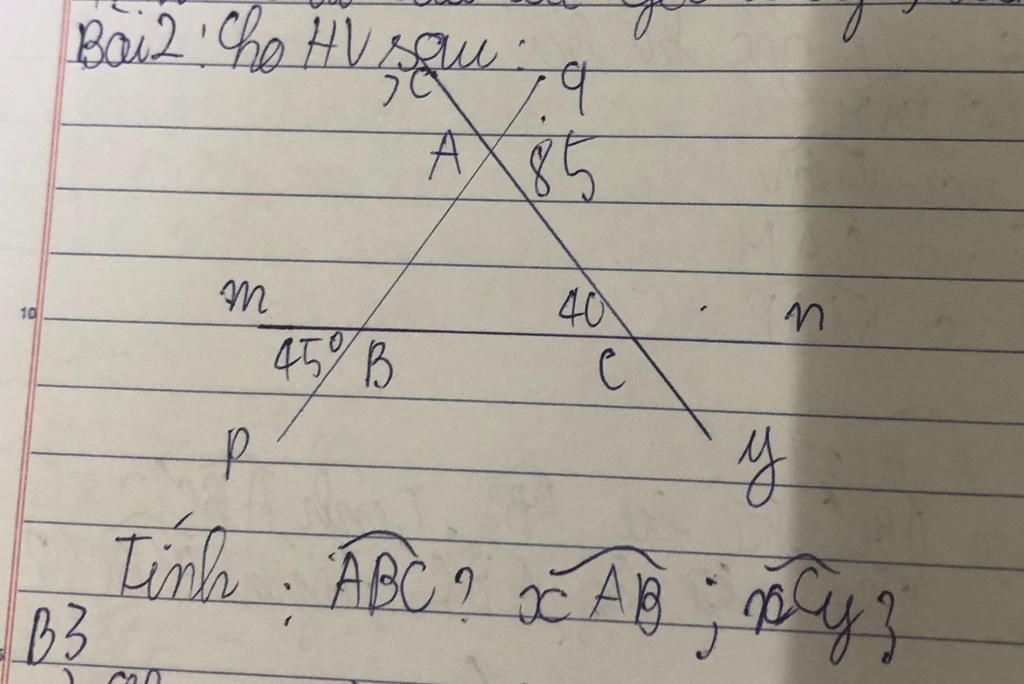 Bài 2: Cho HV sau:
x q
A 85
m 40 n
10
45° B C
p y
Tính: ABC? xAB; nCy?
B3